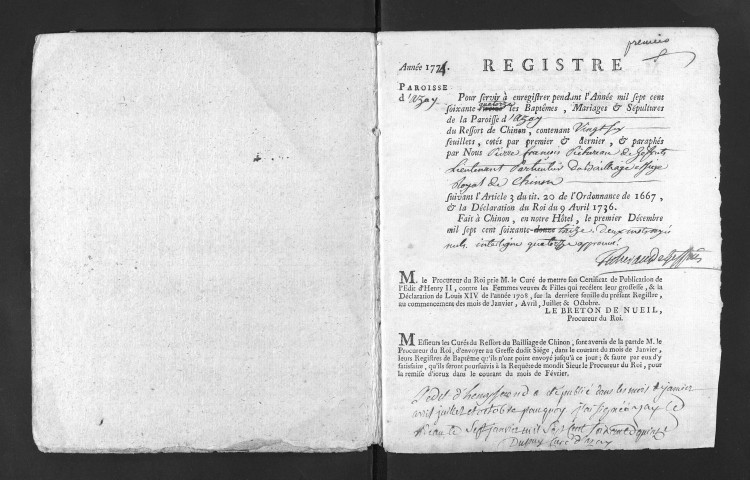 premier
Année 1774. REGISTRE
PAROISSE
d'Azay
Pour servir à enregistrer pendant l'Année mil sept cent
soixante quatorze les Baptêmes, Mariages & Sépultures
de la Paroisse d'Azay
du Ressort de Chinon, contenant Vingt six
feuillets, cotés par premier & dernier, & paraphés
par Nous Pierre François Picherau de Geffrus
Lieutenant Particulier du Bailliage et siege
Royal de Chinon
suivant l'Article 3 du tit. 20 de l'Ordonnance de 1667,
& la Déclaration du Roi du 9 Avril 1736.
Fait à Chinon, en notre Hôtel, le premier Décembre
mil sept cent soixante douze treize deux mots rayés
nuls. interligne quatorze approuvé.
M. le Procureur du Roi prie M. le Curé de mettre son Certificat de Publication de
l'Edit d'Henry II, contre les Femmes veuves & Filles qui recélent leur grossesse, & la
Déclaration de Louis XIV de l'année 1708, sur la derniere feuille du présent Registre,
au commencement des mois de Janvier, Avril, Juillet & Octobre.
LE BRETON DE NUEIL,
Procureur du Roi.
Messieurs les Curés du Ressort du Bailliage de Chinon, sont avertis de la part de M. le
Procureur du Roi, d'envoyer au Greffe dudit Siége, dans le courant du mois de Janvier,
leurs Registres de Baptême qu'ils n'ont point envoyé jusqu'à ce jour; & faute par eux d'y
satisfaire, qu'ils seront poursuivis à la Requête de mondit Sieur le Procureur du Roi, pour
la remise d'iceux dans le courant du mois de Février.
L'edit d'henry second a été publié dans les mois de janvier
avril juillet et octobre pourquoy j'ai signé a azay le
rideau le Sept janvier mil Sept Cent Soixante et quinze
Dussay curé d'azay